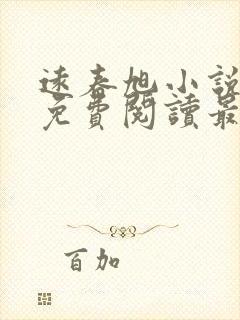 逑春旭小說
免費閱讀最
百加